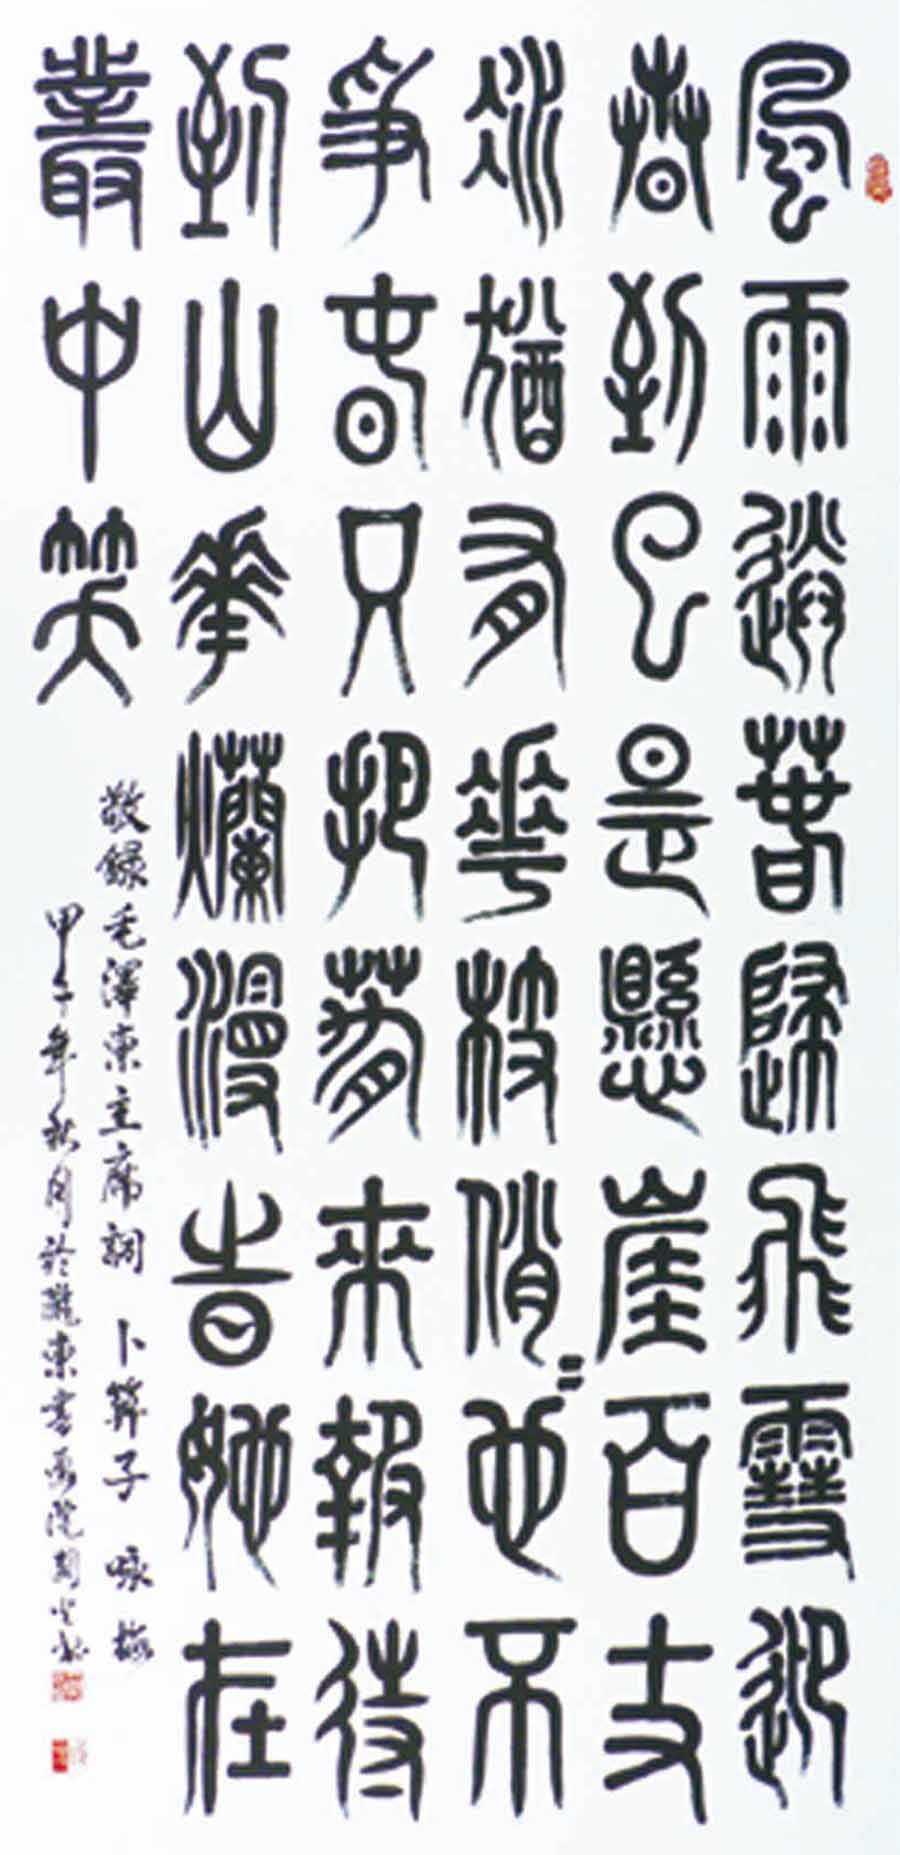 風雨送春歸飛雪迎
春到已是懸崖百丈
冰猶有華枝俏〻也不
爭春只把春來報待
到山華爛漫旹她在
叢中笑
敬録毛澤東主席詞 卜算子 咏梅
甲午年秋月於隴東書畫院